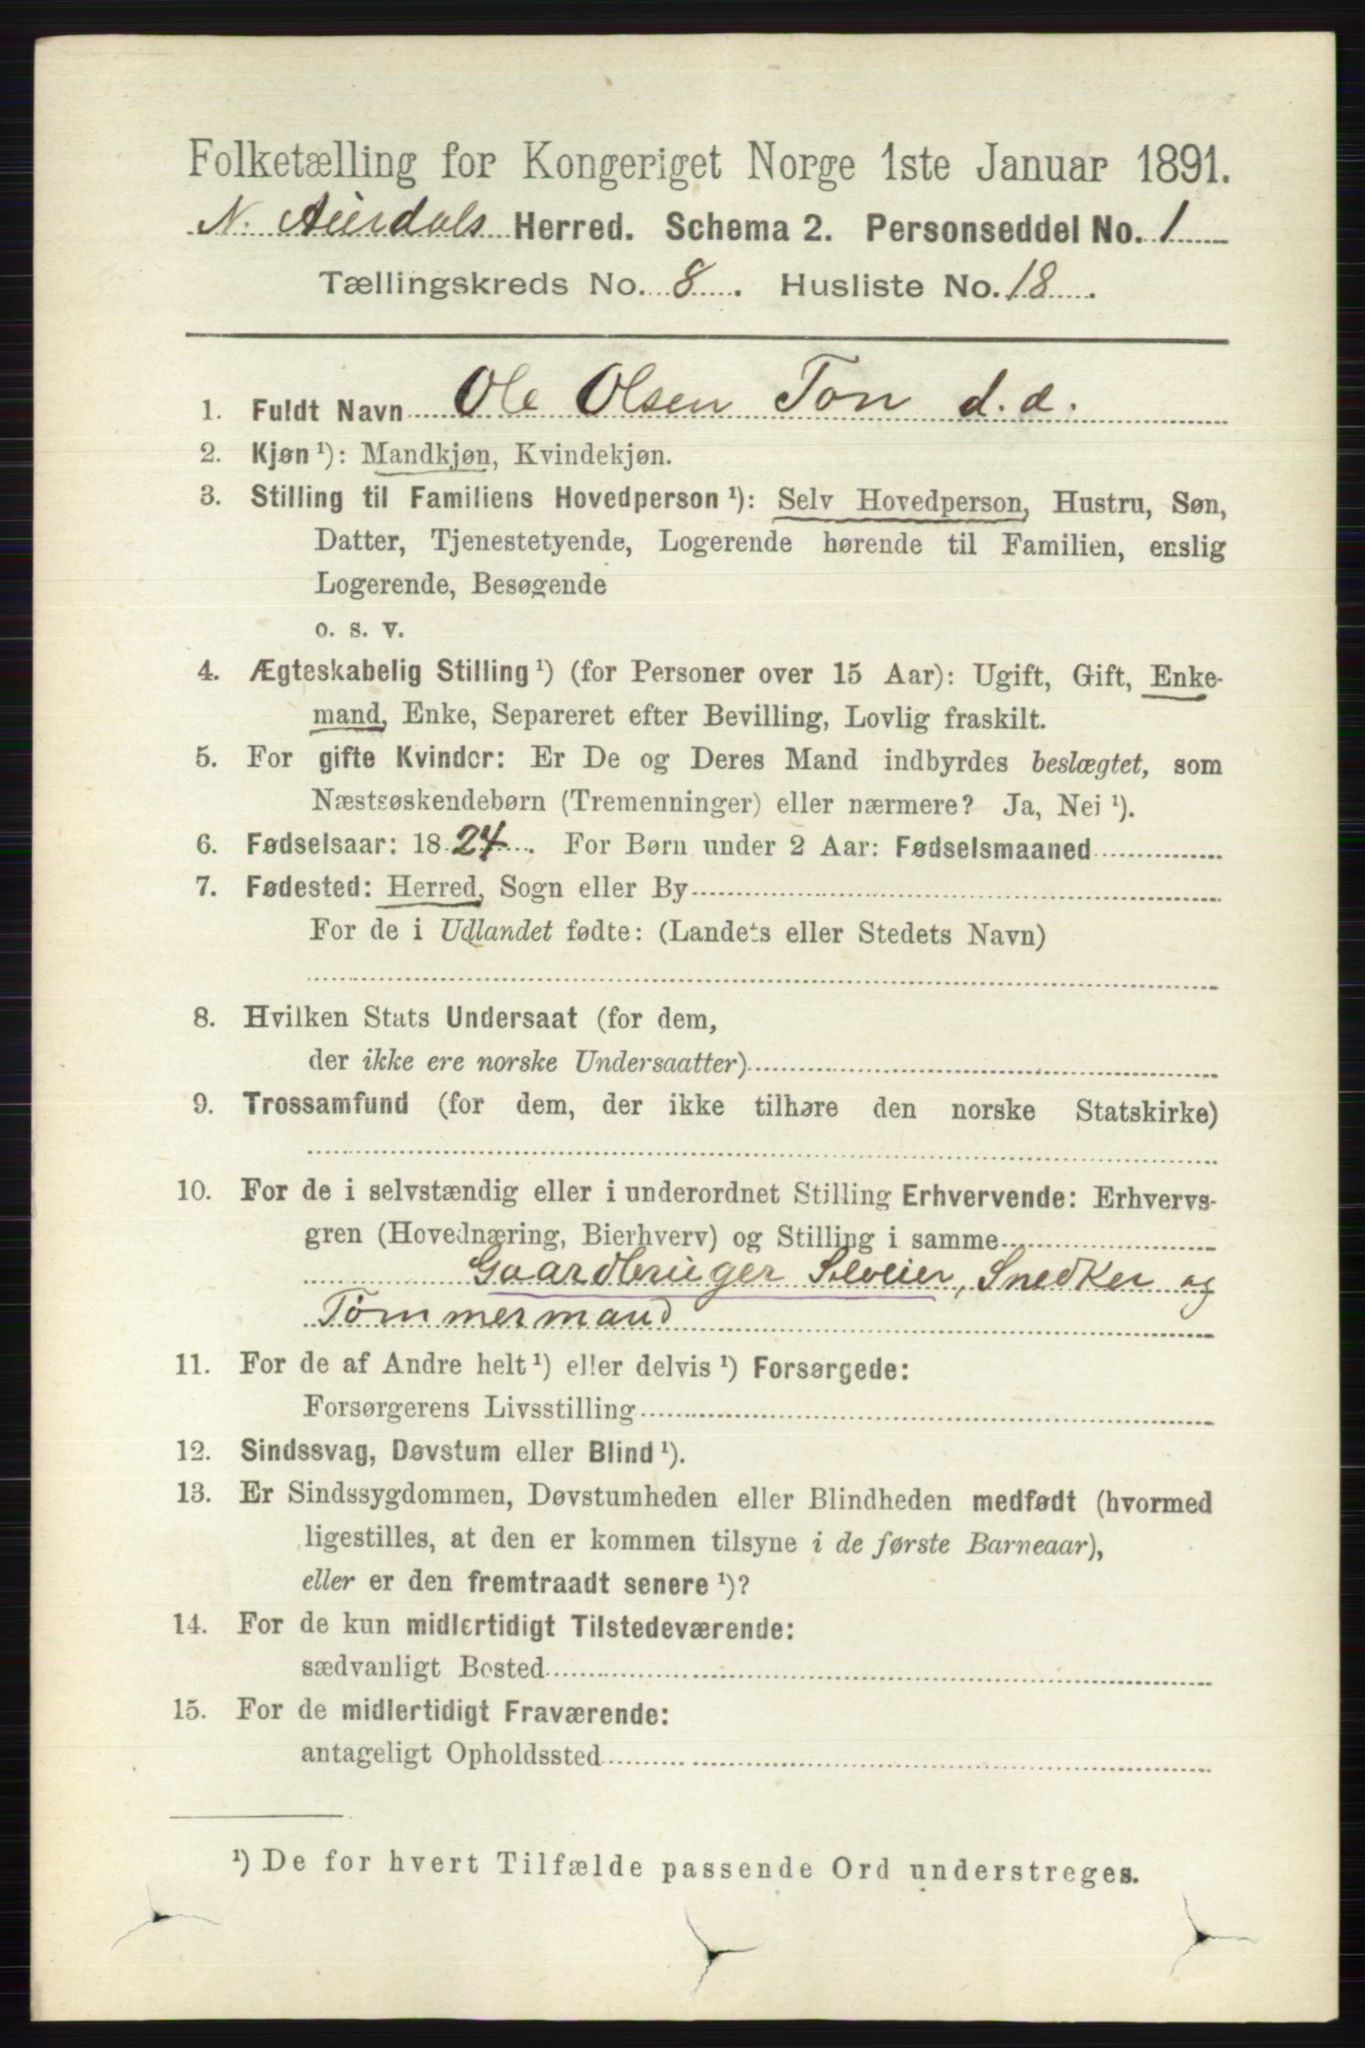 Folketælling for Kongeriget Norge 1ste Januar 1891.
N. Aurdals Herred. Schema 2. Personseddel No. 1
Tællingskreds No. 8. Husliste No. 18.
1. Fuldt Navn Ole Olsen Ton d.æ.
2. Kjøn ¹): Mandkjøn, Kvindekjøn.
3. Stilling til Familiens Hovedperson ¹): Selv Hovedperson, Hustru, Søn,
Datter, Tjenestetyende, Logerende hørende til Familien, enslig
Logerende, Besøgende
o. s. v.
4. Ægteskabelig Stilling ¹) (for Personer over 15 Aar): Ugift, Gift, Enke-
mand, Enke, Separeret efter Bevilling, Lovlig fraskilt.
5. For gifte Kvinder: Er De og Deres Mand indbyrdes beslægtet, som
Næstsøskendebørn (Tremenninger) eller nærmere? Ja, Nei ¹).
6. Fødselsaar: 1824. For Børn under 2 Aar: Fødselsmaaned
7. Fødested: Herred, Sogn eller By
For de i Udlandet fødte: (Landets eller Stedets Navn)
8. Hvilken Stats Undersaat (for dem,
der ikke ere norske Undersaatter)
9. Trossamfund (for dem, der ikke tilhøre den norske Statskirke)
10. For de i selvstændig eller i underordnet Stilling Erhvervende: Erhvervs-
gren (Hovednæring, Bierhverv) og Stilling i samme
Gaardbruger Selveier, Snedker og
Tömmermand
11. For de af Andre helt ¹) eller delvis ¹) Forsørgede:
Forsørgerens Livsstilling
12. Sindssvag, Døvstum eller Blind ¹).
13. Er Sindssygdommen, Døvstumheden eller Blindheden medfødt (hvormed
ligestilles, at den er kommen tilsyne i de første Barneaar),
eller er den fremtraadt senere ¹)?
14. For de kun midlertidigt Tilstedeværende:
sædvanligt Bosted
15. For de midlertidigt Fraværende:
antageligt Opholdssted
¹) De for hvert Tilfælde passende Ord understreges.